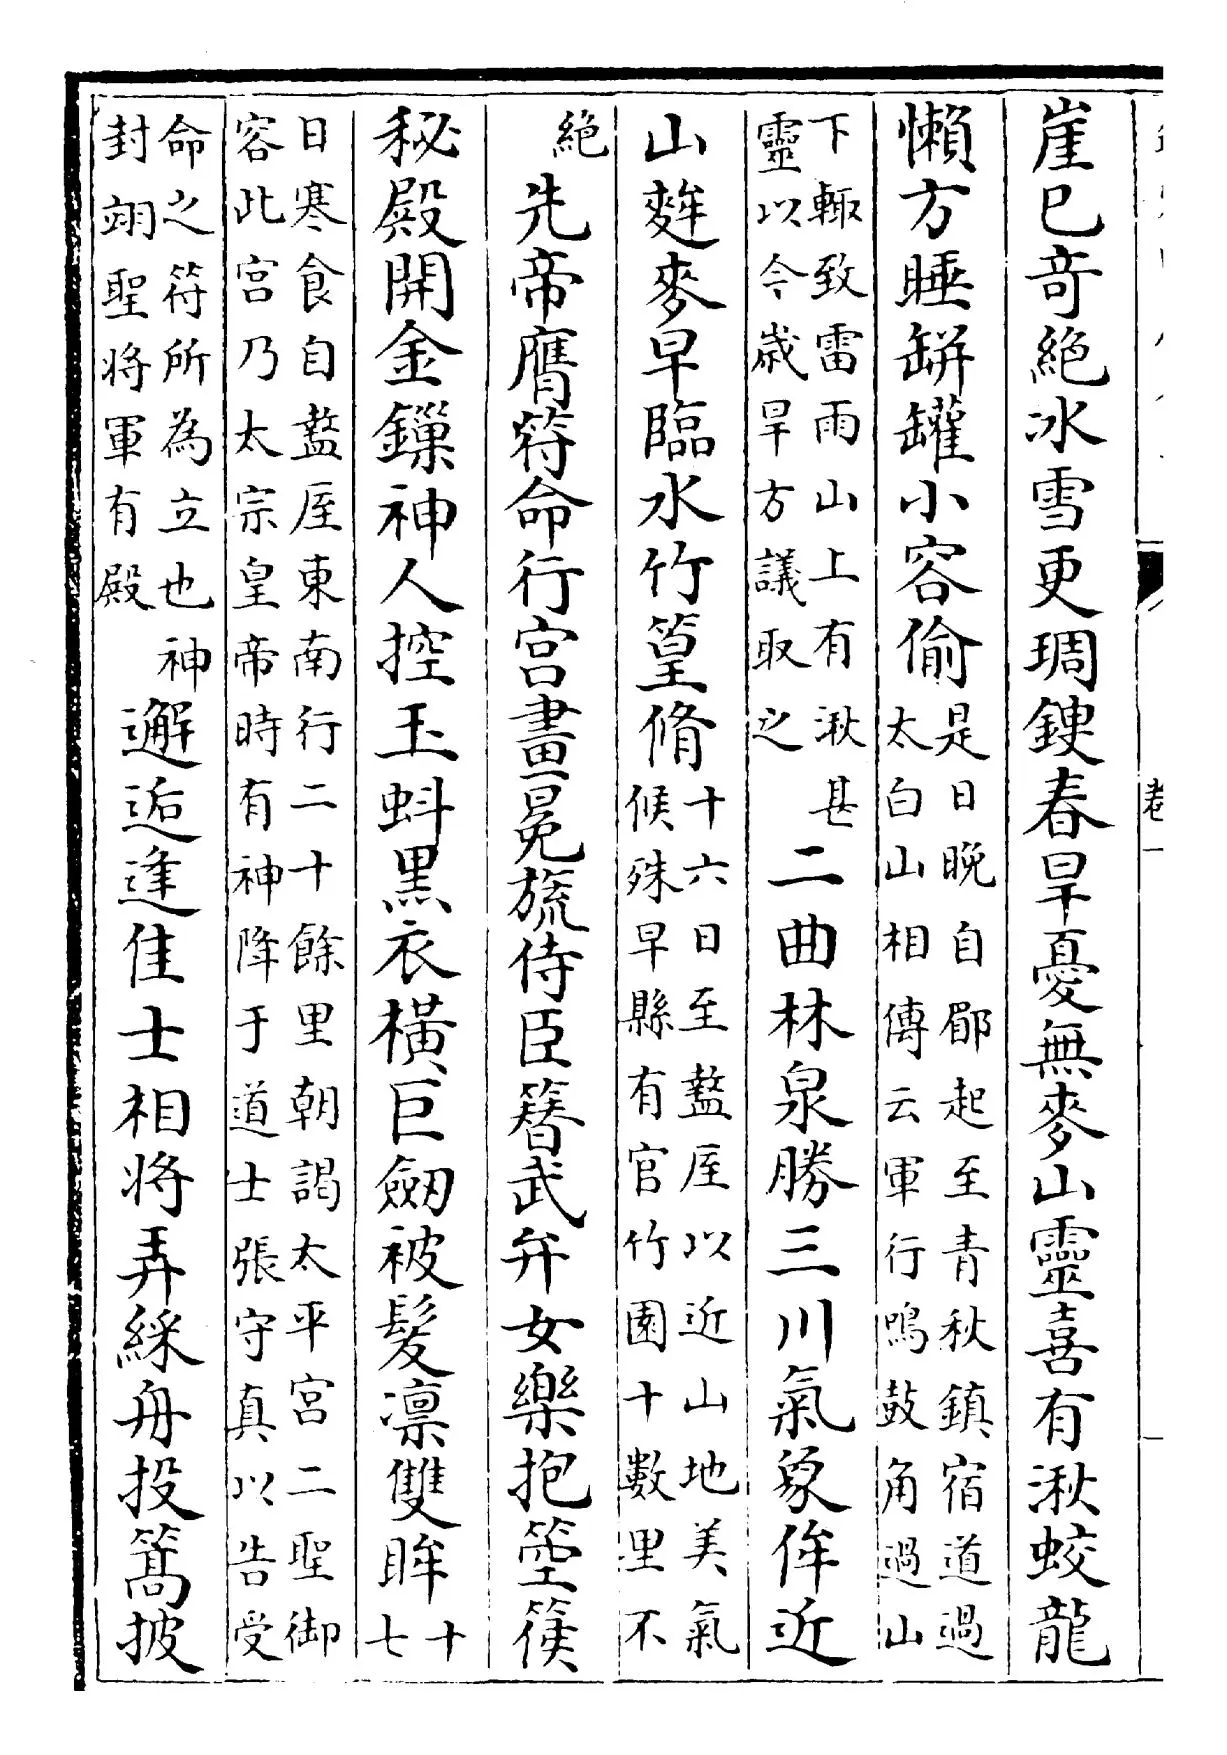 崖巳竒絶冰雪更琱鎪春旱憂無麥山靈喜有湫蛟龍
懶方睡缾罐小容偷是日晚自郿起至青秋鎮宿道過太白山相傳云軍行鳴鼓角過山
下輙致雷雨山上有湫甚靈以今歳旱方議取之二曲林泉勝三川氣象侔近
山麰麥早臨水竹篁脩十六日至盩厔以近山地美氣候殊早縣有官竹園十數里不
絶先帝膺符命行宫畫冕旒侍臣簮武弁女樂抱箜篌
秘殿開金鏁神人控玉蚪黒衣橫巨劒被髮凛雙眸十七
日寒食自盩厔東南行二十餘里朝謁太平宮二聖御容此宫乃太宗皇帝時有神降于道士張守真以告受
命之符所為立也神封翊聖將軍有殿邂逅逢佳士相將弄綵舟投篙披
卷一